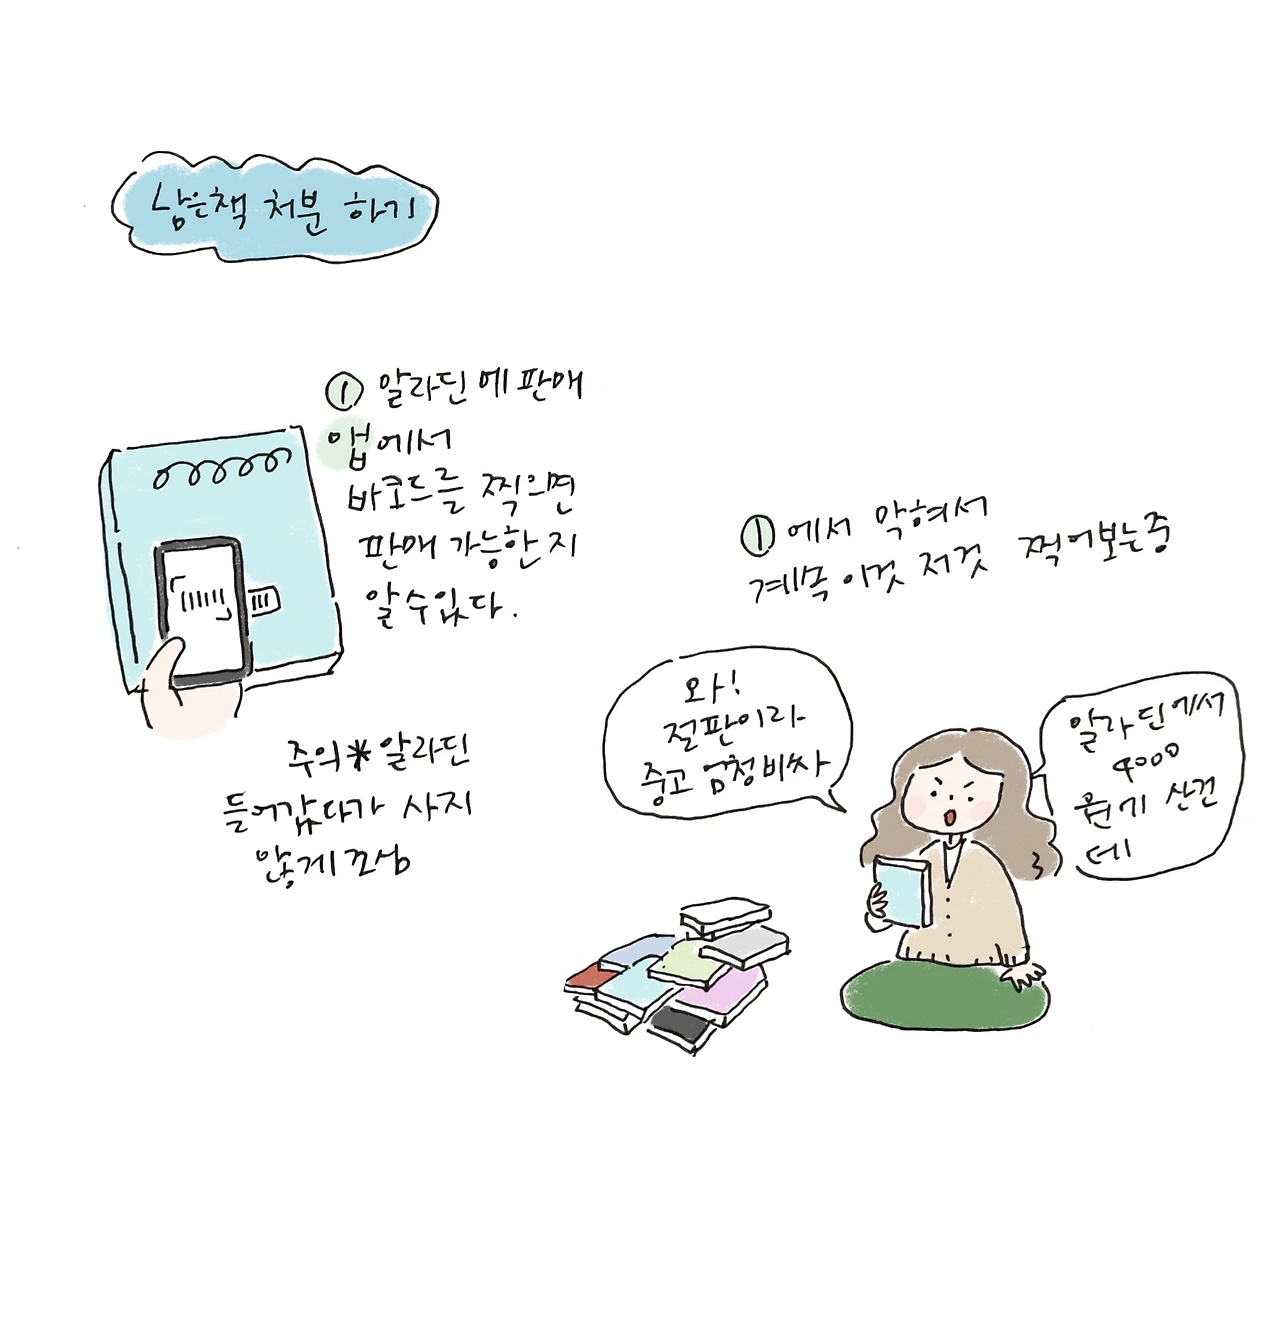 남은책 처분 하기
① 알라딘에 판매
앱에서
바코드를 찍으면
판매 가능한지
알 수 있다.
주의*알라딘
들어갔다가 사지
않게 조심
① 에서 막혀서
계속 이것 저것 찍어보는중
와!
절판이라
중고 엄청비싸
알라딘에서
4000
산건
데